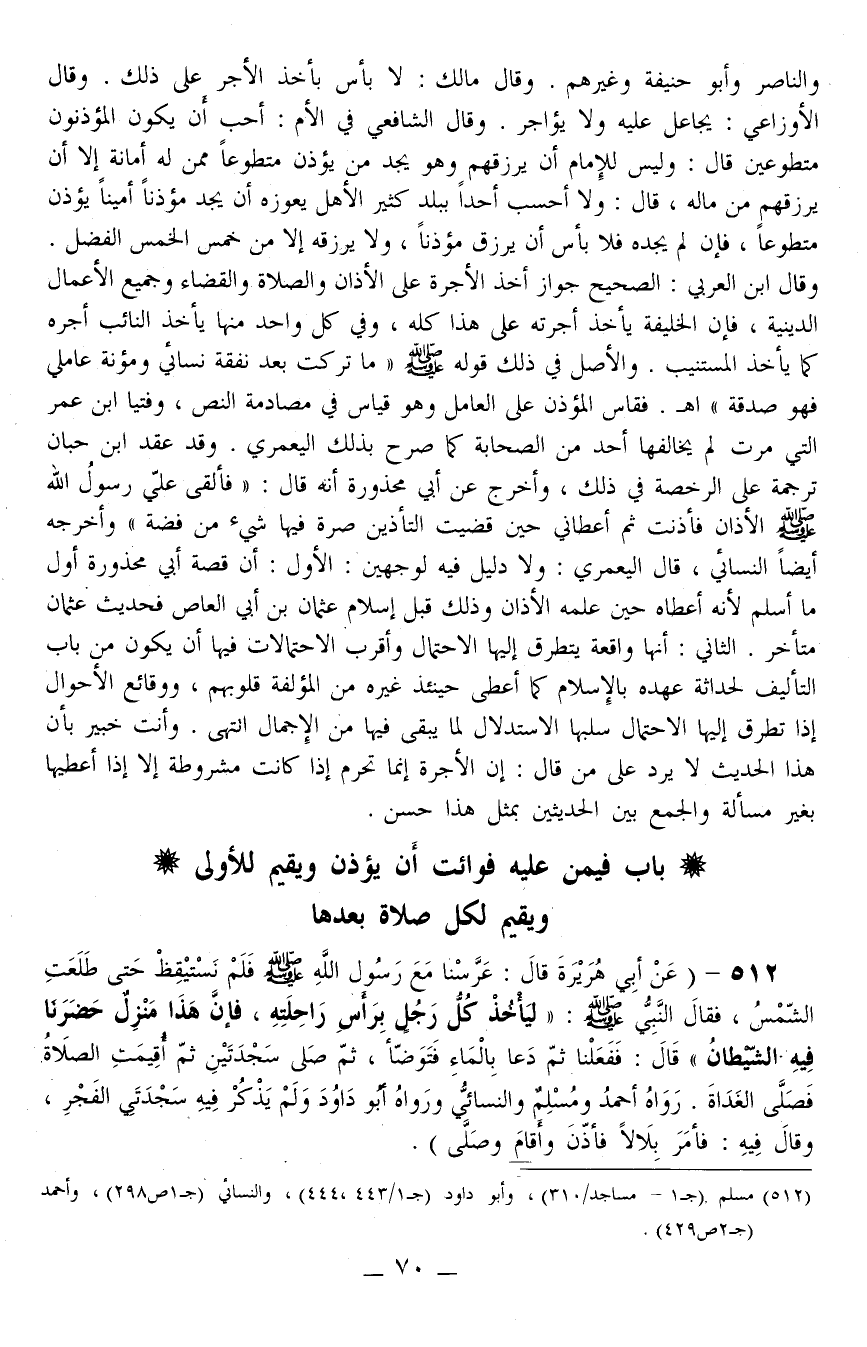 والناصر وأبو حنيفة وغيرهم . وقال مالك : لا بأس بأخذ الأجر على ذلك . وقال
الأوزاعي : يجاعل عليه ولا يؤاجر . وقال الشافعي في الأم : أحب أن يكون المؤذنون
متطوعين قال : وليس للإمام أن يرزقهم وهو يجد من يؤذن متطوعاً ممن له أمانة إلا أن
يرزقهم من ماله ، قال : ولا أحسب أحداً ببلد كثير الأهل يعوزه أن يجد مؤذناً أميناً يؤذن
متطوعاً ، فإن لم يجده فلا بأس أن يرزق مؤذناً ، ولا يرزقه إلا من خمس الخمس الفضل .
وقال ابن العربي : الصحيح جواز أخذ الأجرة على الأذان والصلاة والقضاء وجميع الأعمال
الدينية ، فإن الخليفة يأخذ أجرته على هذا كله ، وفي كل واحد منها يأخذ النائب أجره
كما يأخذ المستنيب . والأصل في ذلك قوله ﷺ « ما تركت بعد نفقة نسائي ومؤنة عاملي
فهو صدقة » اهـ . فقاس المؤذن على العامل وهو قياس في مصادمة النص ، وفتيا ابن عمر
التي مرت لم يخالفها أحد من الصحابة كما صرح بذلك اليعمري . وقد عقد ابن حبان
ترجمة على الرخصة في ذلك ، وأخرج عن أبي محذورة أنه قال : « فألقى عليّ رسولُ الله
ﷺ الأذان فأذنت ثم أعطاني حين قضيت التأذين صرة فيها شيء من فضة » وأخرجه
أيضاً النسائي ، قال اليعمري : ولا دليل فيه لوجهين : الأول : أن قصة أبي محذورة أول
ما أسلم لأنه أعطاه حين علمه الأذان وذلك قبل إسلام عثمان بن أبي العاص فحديث عثمان
متأخر . الثاني : أنها واقعة يتطرق إليها الاحتمال وأقرب الاحتمالات فيها أن يكون من باب
التأليف لحداثة عهده بالإسلام كما أعطى حينئذ غيره من المؤلفة قلوبهم ، ووقائع الأحوال
إذا تطرق إليها الاحتمال سلبها الاستدلال لما يبقى فيها من الإجمال انتهى . وأنت خبير بأن
هذا الحديث لا يرد على من قال : إن الأجرة إنما تحرم إذا كانت مشروطة إلا إذا أعطيها
بغير مسألة والجمع بين الحديثين بمثل هذا حسن .
باب فيمن عليه فوائت أن يؤذن ويقيم للأولى
ويقيم لكل صلاة بعدها
٥١٢ – ( عَنْ أبي هُرَيْرَةَ قالَ : عَرَّسْنا مَعَ رَسُولِ اللَّهِ ﷺ فَلَمْ نَسْتَيْقِظْ حَتى طَلَعَتِ
الشَّمْسُ ، فقالَ النَّبِيُّ ﷺ : « لِيَأْخُذْ كُلُّ رَجُلٍ بِرَأْسِ رَاحِلَتِهِ ، فإنَّ هَذَا مَنْزِلٌ حَضَرَنَا
فِيهِ الشَّيْطانُ » قَالَ : فَفَعَلْنا ثمّ دَعا بِالْماءِ فَتَوَضّأ ، ثمّ صَلى سَجْدَتَيْنِ ثمّ أُقِيمَتِ الصلَاةُ
فَصَلَّى الغَدَاةَ . رَوَاهُ أحمدُ ومُسْلِمٌ والنسائيُّ ورواهُ أبُو دَاوُدَ وَلَمْ يَذْكُرْ فِيهِ سَجْدَتَيِ الفَجْرِ ،
وقالَ فِيهِ : فأمَرَ بِلَالاً فأذّنَ وأقامَ وصَلَّى ) .
(٥١٢) مسلم (جـ١ – مساجد/٣١٠) ، وأبو داود (جـ١/٤٤٣ ،٤٤٤) ، والنسائي (جـ١ص٢٩٨) ، وأحمد
(جـ٢ص٤٢٩) .
– ٧٠ –